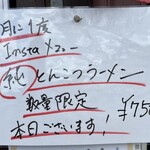 月に1度
Instaメニュー
純とんこつラーメン
数量限定
¥75
本日ございます!